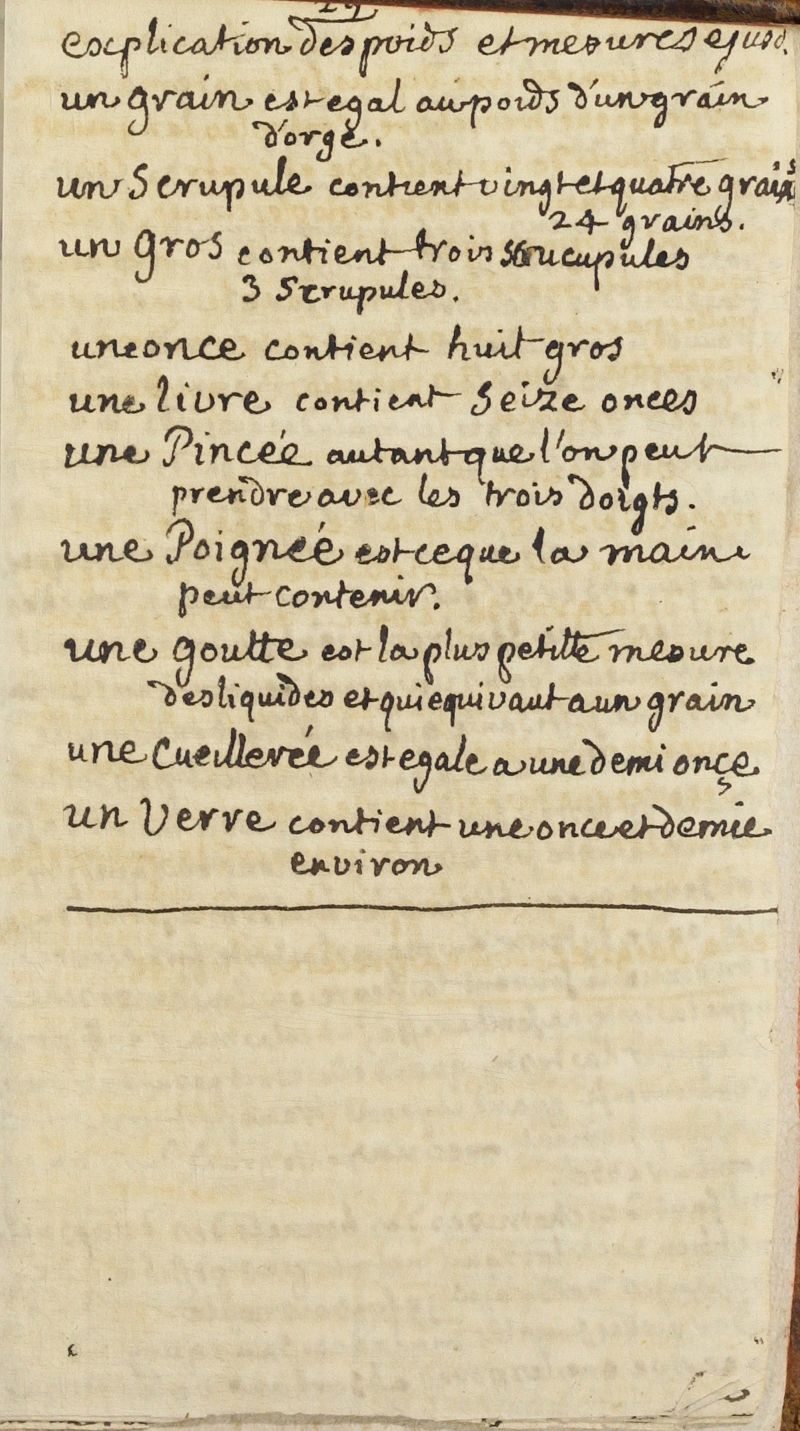 29
explication des poids et mesures ejusd.
un grain est egal au poids d'un grain
d'orge.
un Scrupule contient vingt et quatre grains
24 grains.
un Gros contient trois
3 Scrupules.
une once contient huit gros
une livre contient Seize onces
une Pincée autant que l'on peut
prendre avec les trois doigts.
une Poigneé est ce que la main
peut contenir.
une goutte est la plus petitte mesure
des liquides et qui equivaut a un grain
une Cueillereé est egale a une demi onçe
un Verre contient une once et demie
environ